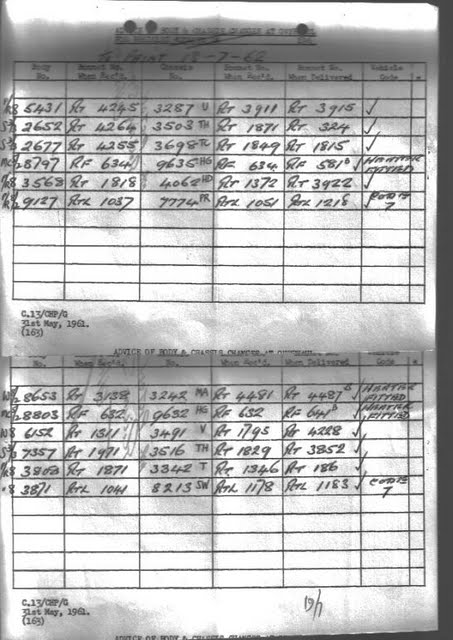 ADVICE OF BODY & CHASSIS CHANGES AT
18-7-62
Body No. Bonnet No. When Rec'd. Chassis No. Bonnet No. When Rec'd. Bonnet No. When Delivered Vehicle Code *
5431 RT 4245 3287 U RT 3911 RT 3915 ✓
2652 RT 4264 3503 TH RT 1871 RT 324 ✓
2677 RT 4255 3698 TC RT 1849 RT 1815 ✓
8797 RF 634 9635 HG RF 634 RF 581 B ✓ HEATER FITTED
3568 RT 1818 4062 RT 1372 RT 3922 ✓
9127 RTL 1037 7774 PR RTL 1051 RTL 1218 ✓ CODE 7
C.13/CHP/G
31st May, 1961.
(163)
ADVICE OF BODY & CHASSIS CHANGES AT
No. When Rec'd. No. When Rec'd. When Delivered Code *
8653 RT 3138 3242 MA RT 4481 RT 4487 B ✓ HEATER FITTED
8803 RF 632 9632 HG RF 632 RF 641 B ✓ HEATER FITTED
6152 RT 1311 3491 V RT 1795 RT 4228 ✓
7357 RT 1971 3516 TH RT 1829 RT 3852 ✓
3803 RT 1871 3342 T RT 1346 RT 186 ✓
3871 RTL 1041 8213 SW RTL 1178 RTL 1183 ✓ CODE 7
19/7
C.13/CHP/G
31st May, 1961.
(163)
ADVICE OF BODY & CHASSIS CHANGES AT